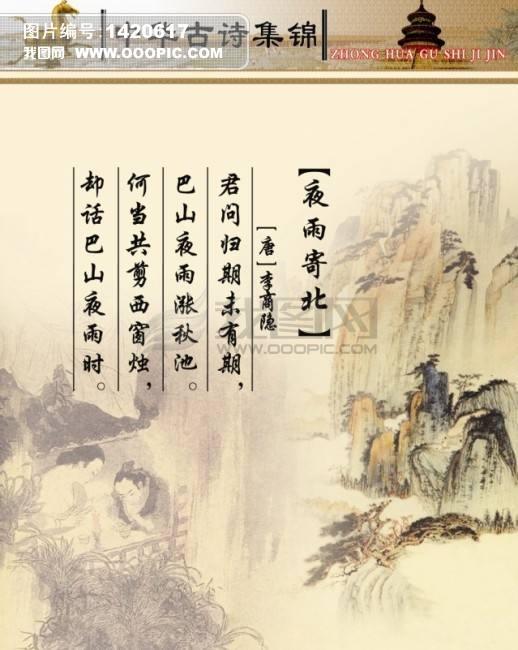 图片编号:1420617
我图网 www.OOOPIC.com
古诗集锦
ZHONG HUA GU SHI JI JIN
【夜雨寄北】
[唐]李商隐
君问归期未有期，
巴山夜雨涨秋池。
何当共剪西窗烛，
却话巴山夜雨时。
我图网
WWW.OOOPIC.COM